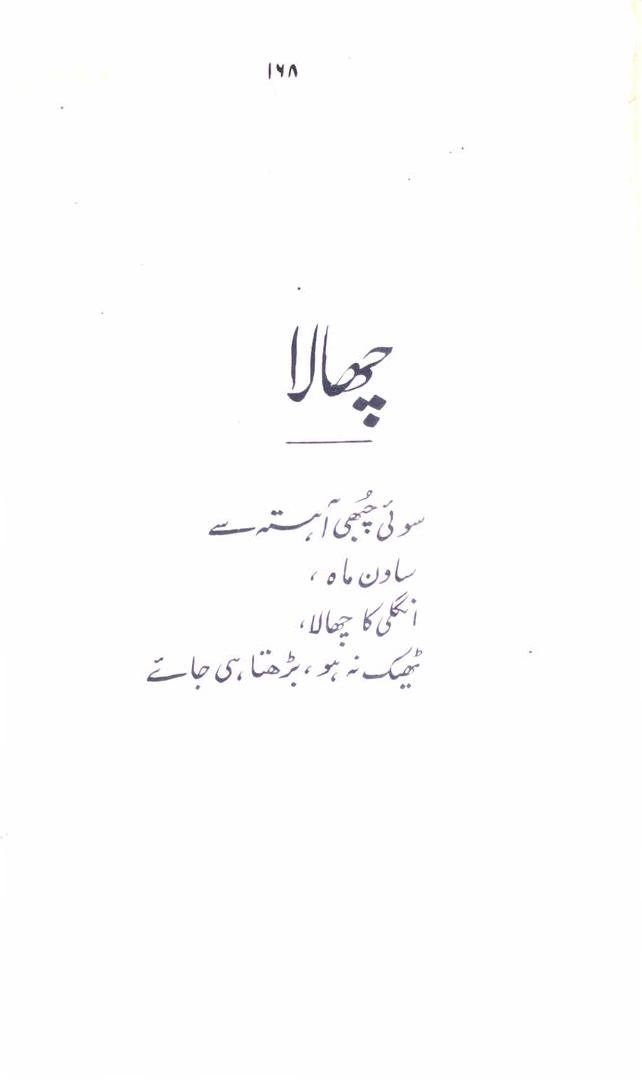 ۱۶۸
چھالا
سوئی چُبھی آہستہ سے
ساون ماہ ،
انگلی کا چھالا،
ٹھیک نہ ہو ، بڑھتا ہی جائے